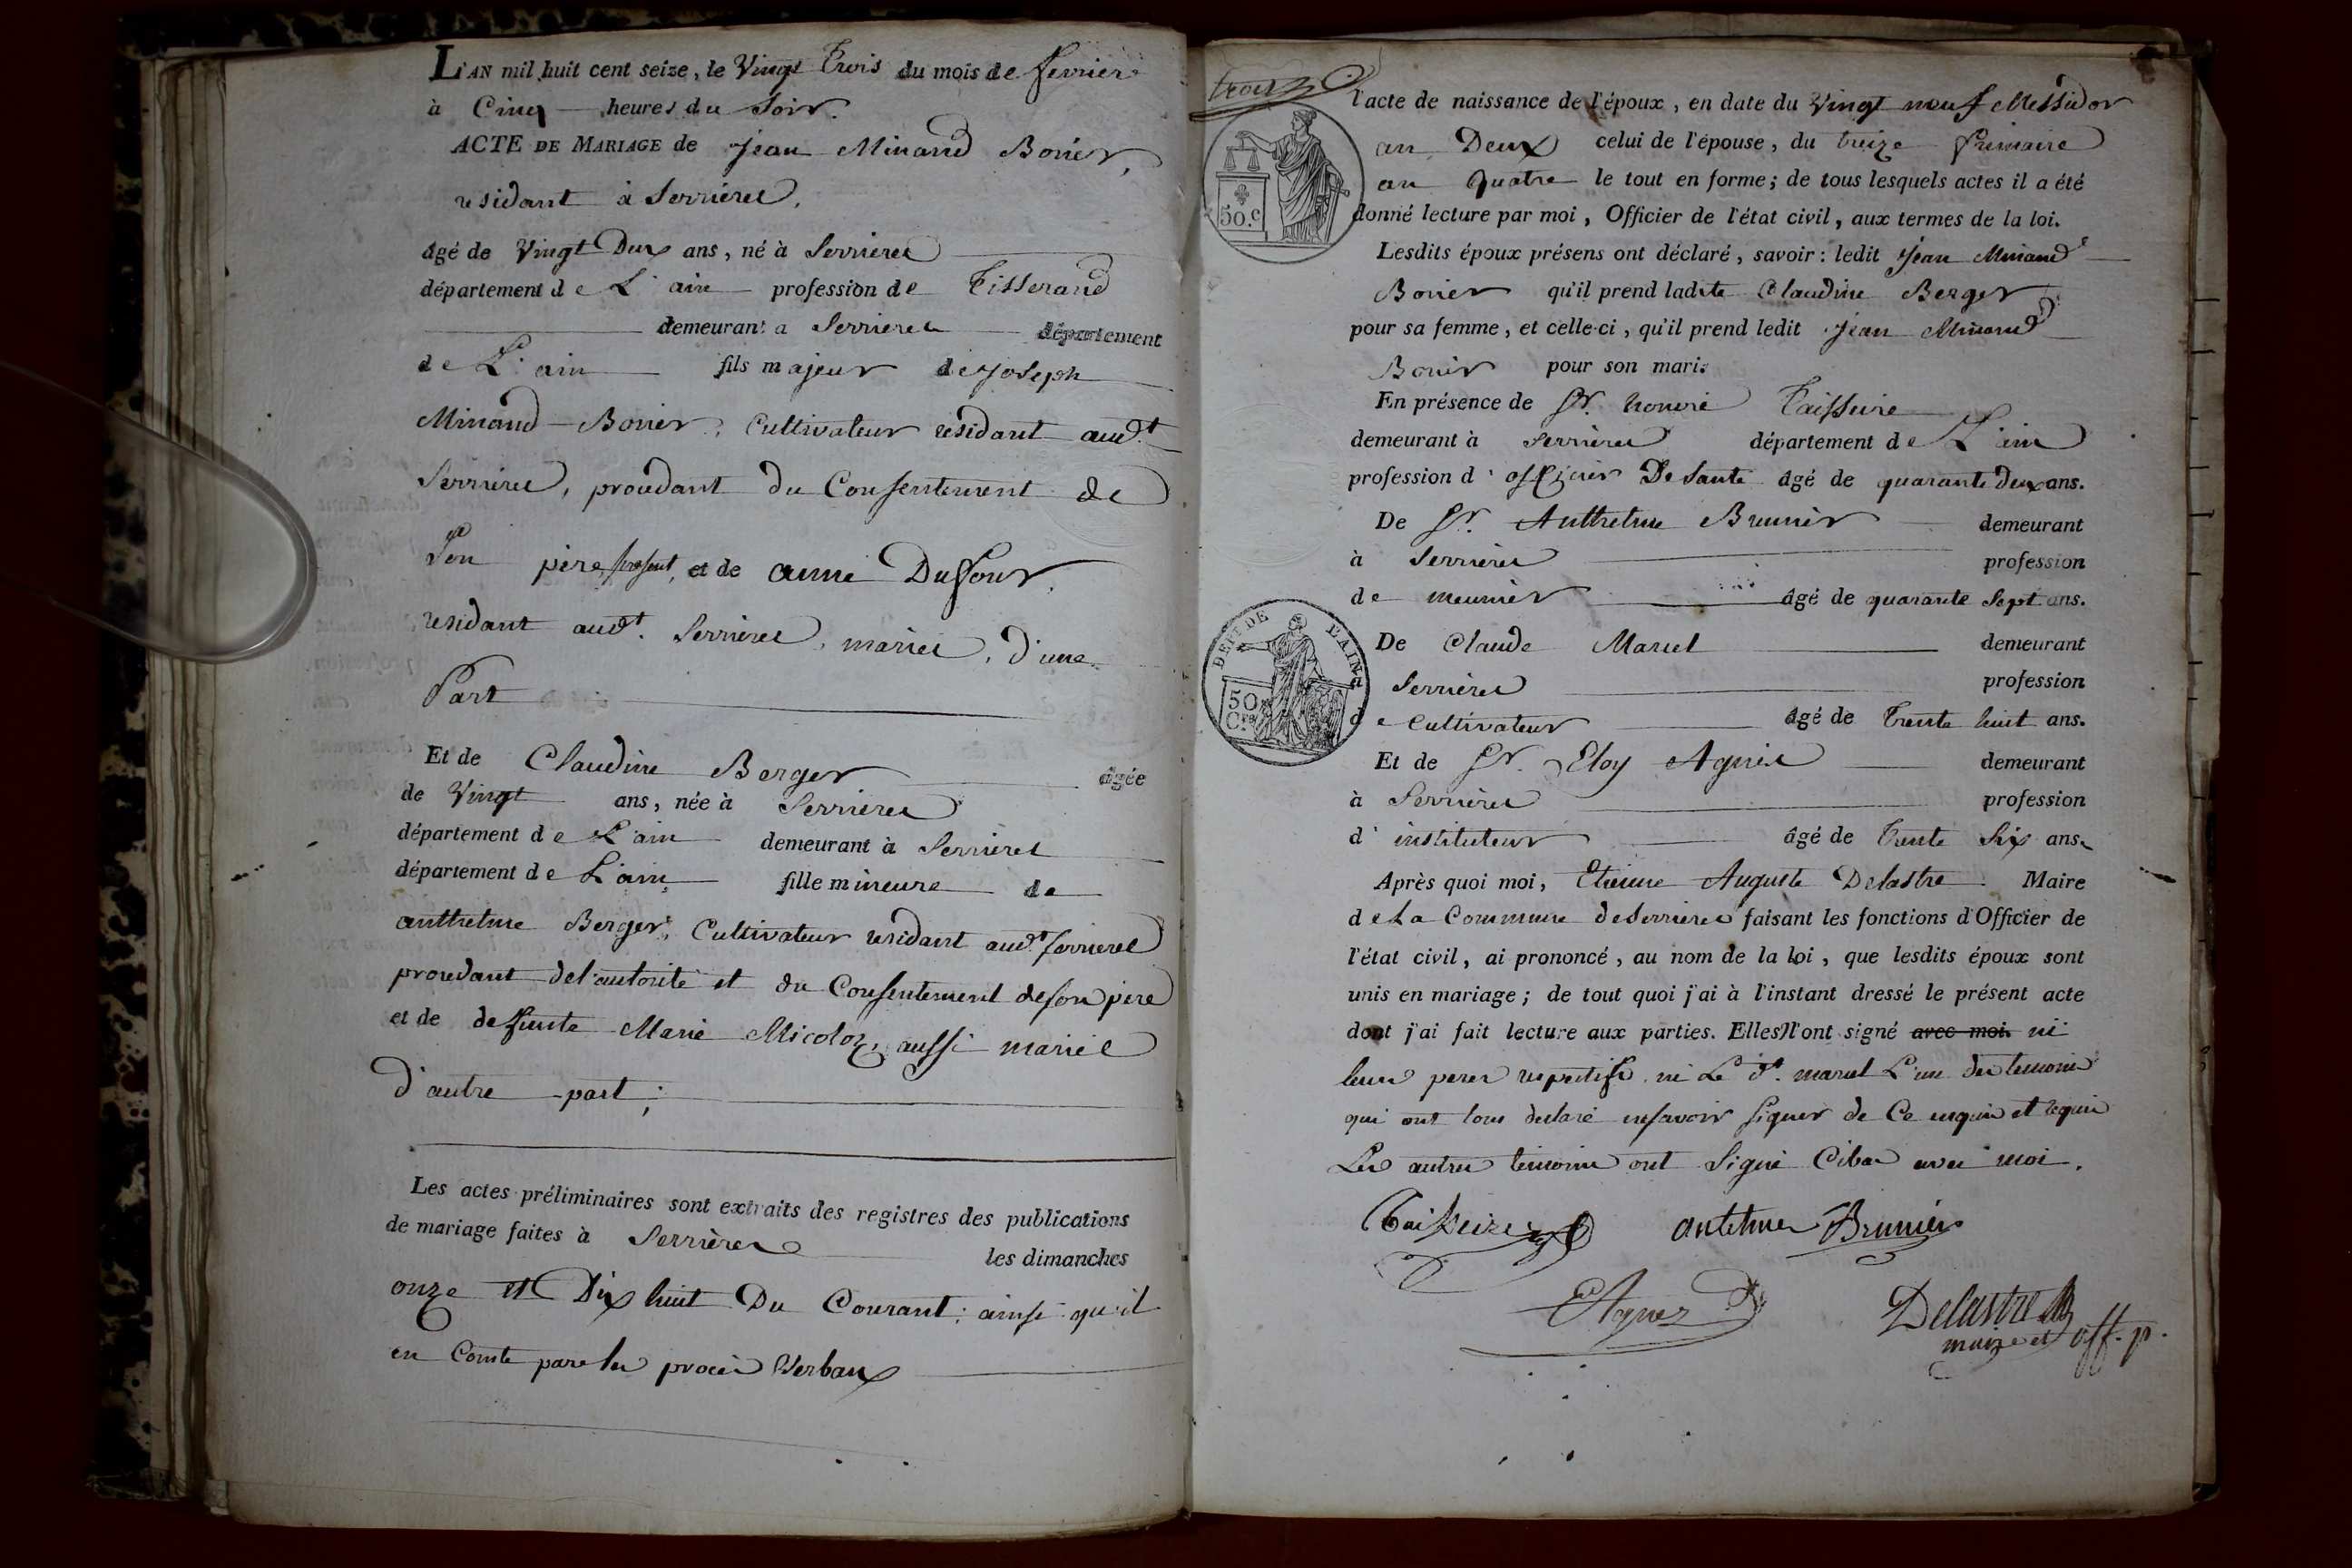 L'AN mil huit cent seize, le Vingt Trois du mois de fevrier
à Cinq heures du Soir.
ACTE DE MARIAGE de Jean Minand Bovier,
residant à Serrieres,
âgé de Vingt Deux ans, né à Serrieres
département de L'ain profession de Tisserand
demeurant a Serrieres département
de L'ain fils majeur de Joseph
Minand-Bovier, Cultivateur residant aud.t
Serrieres, procedant du Consentement de
Son père, present, et de anne Dufour,
residant aud.t Serrieres, mariés, d'une
Part
Et de Claudine Berger âgée
de Vingt ans, née à Serrieres
département de L'ain demeurant à Serrieres
département de L'ain fille mineure de
anthelme Berger, Cultivateur residant aud.t Serrieres
procedant de l'autorité et du Consentement de son pere
et de defunte Marie Micoloz, aussi mariés
d'autre part;
Les actes préliminaires sont extraits des registres des publications
de mariage faites à Serrières les dimanches
onze et Dix huit Du Courant; ainsi qu'il
en Conste par les procès Verbaux
trois
l'acte de naissance de l'époux, en date du Vingt neuf Messidor
an Deux celui de l'épouse, du treize frimaire
an Quatre le tout en forme; de tous lesquels actes il a été
50.c
donné lecture par moi, Officier de l'état civil, aux termes de la loi.
Lesdits époux présens ont déclaré, savoir: ledit Jean Minand
Bovier qu'il prend ladite Claudine Berger
pour sa femme, et celle-ci, qu'il prend ledit Jean Minand
Bovier pour son mari.
En présence de Sr. honoré Taisseire
demeurant à Serrieres département de L'ain
profession d'officier De Santé âgé de quarante deux ans.
De Sr. Anthelme Brunier demeurant
à Serrieres profession
de meunier âgé de quarante Sept ans.
DEPT DE L'AIN
50 Ces
De Claude Marcel demeurant
à Serrieres profession
de Cultivateur âgé de Trente huit ans.
Et de Sr. Eloy Agniel demeurant
à Serrieres profession
d'instituteur âgé de Trente Six ans.
Après quoi moi, Etienne Auguste Delastre Maire
de La Commune de Serrieres faisant les fonctions d'Officier de
l'état civil, ai prononcé, au nom de la loi, que lesdits époux sont
unis en mariage; de tout quoi j'ai à l'instant dressé le présent acte
dont j'ai fait lecture aux parties. Elles n'ont signé avec moi. ni
leurs peres respectifs ni Le d.t marcel L'un des temoins
qui ont tous declaré ne savoir signer de Ce enquis et requis
Les autres temoins ont Signé avec moi.
Taisseire antelme Brunier
Delastre
maire et off. p.